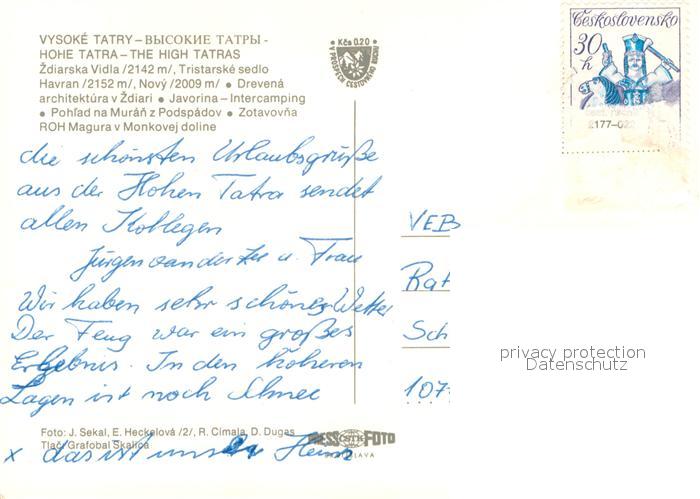 VYSOKÉ TATRY – ВЫСОКИЕ ТАТРЫ -
HOHE TATRA – THE HIGH TATRAS
Ždiarska Vidla /2142 m/, Tristarské sedlo
Havran /2152 m/, Nový /2009 m/ • Drevená
architektúra v Ždiari • Javorina – Intercamping
• Pohľad na Muráň z Podspádov • Zotavovňa
ROH Magura v Monkovej doline
Kčs 0,20
Československo
30 h
2177-02
die schönsten Urlaubsgrüße
aus der Hohen Tatra sendet
allen Kollegen
Jürgen van der u. Frau
Wir haben sehr schönes Wetter
Der Flug war ein großes
Erlebnis. In den höheren
Lagen ist noch Schnee
VEB
Rat
Sch
107
privacy protection
Datenschutz
Foto: J. Sekal, E. Heckelová /2/, R. Cimala, D. Dugas
Tlač Grafobal Skalica
PRESSFOTO
BRATISLAVA
x das ist unser